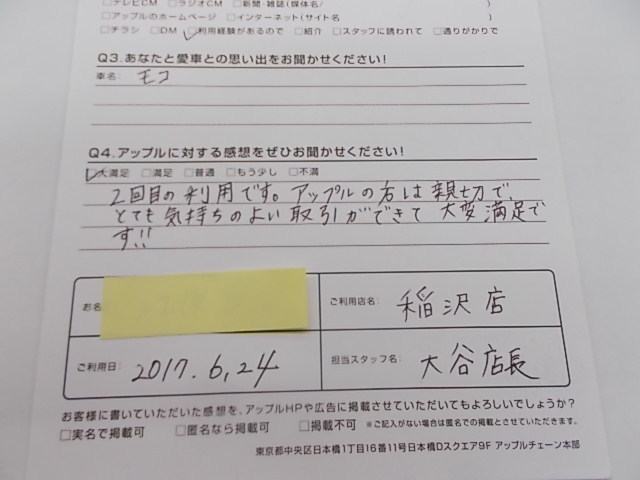 □テレビCM □ラジオCM □新聞・雑誌(媒体名/ )
□アップルのホームページ □インターネット(サイト名 )
□チラシ □DM □利用経験があるので □紹介 □スタッフに誘われて □通りがかりで
Q3.あなたと愛車との思い出をお聞かせください!
車名: モコ
Q4.アップルに対する感想をぜひお聞かせください!
□大満足 □満足 □普通 □もう少し □不満
2回目の利用です。アップルの方は親切で、
とても気持ちのよい取引ができて大変満足で
す!!
お名
ご利用店名: 稲沢店
ご利用日: 2017.6,24
担当スタッフ名: 大谷店長
お客様に書いていただいた感想を、アップルHPや広告に掲載させていただいてもよろしいでしょうか?
□実名で掲載可 □匿名なら掲載可 □掲載不可 ※ご記入がない場合は匿名での掲載とさせていただきます。
東京都中央区日本橋1丁目16番11号日本橋Dスクエア9F アップルチェーン本部